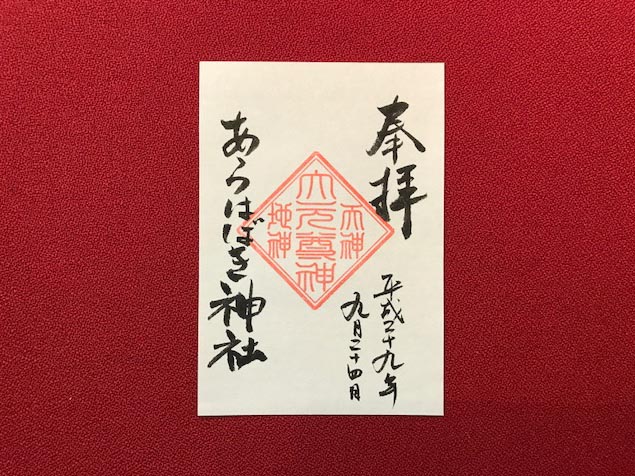 奉拝
平成二十九年
九月二十四日
天神
大元尊神
地神
あらはばき神社